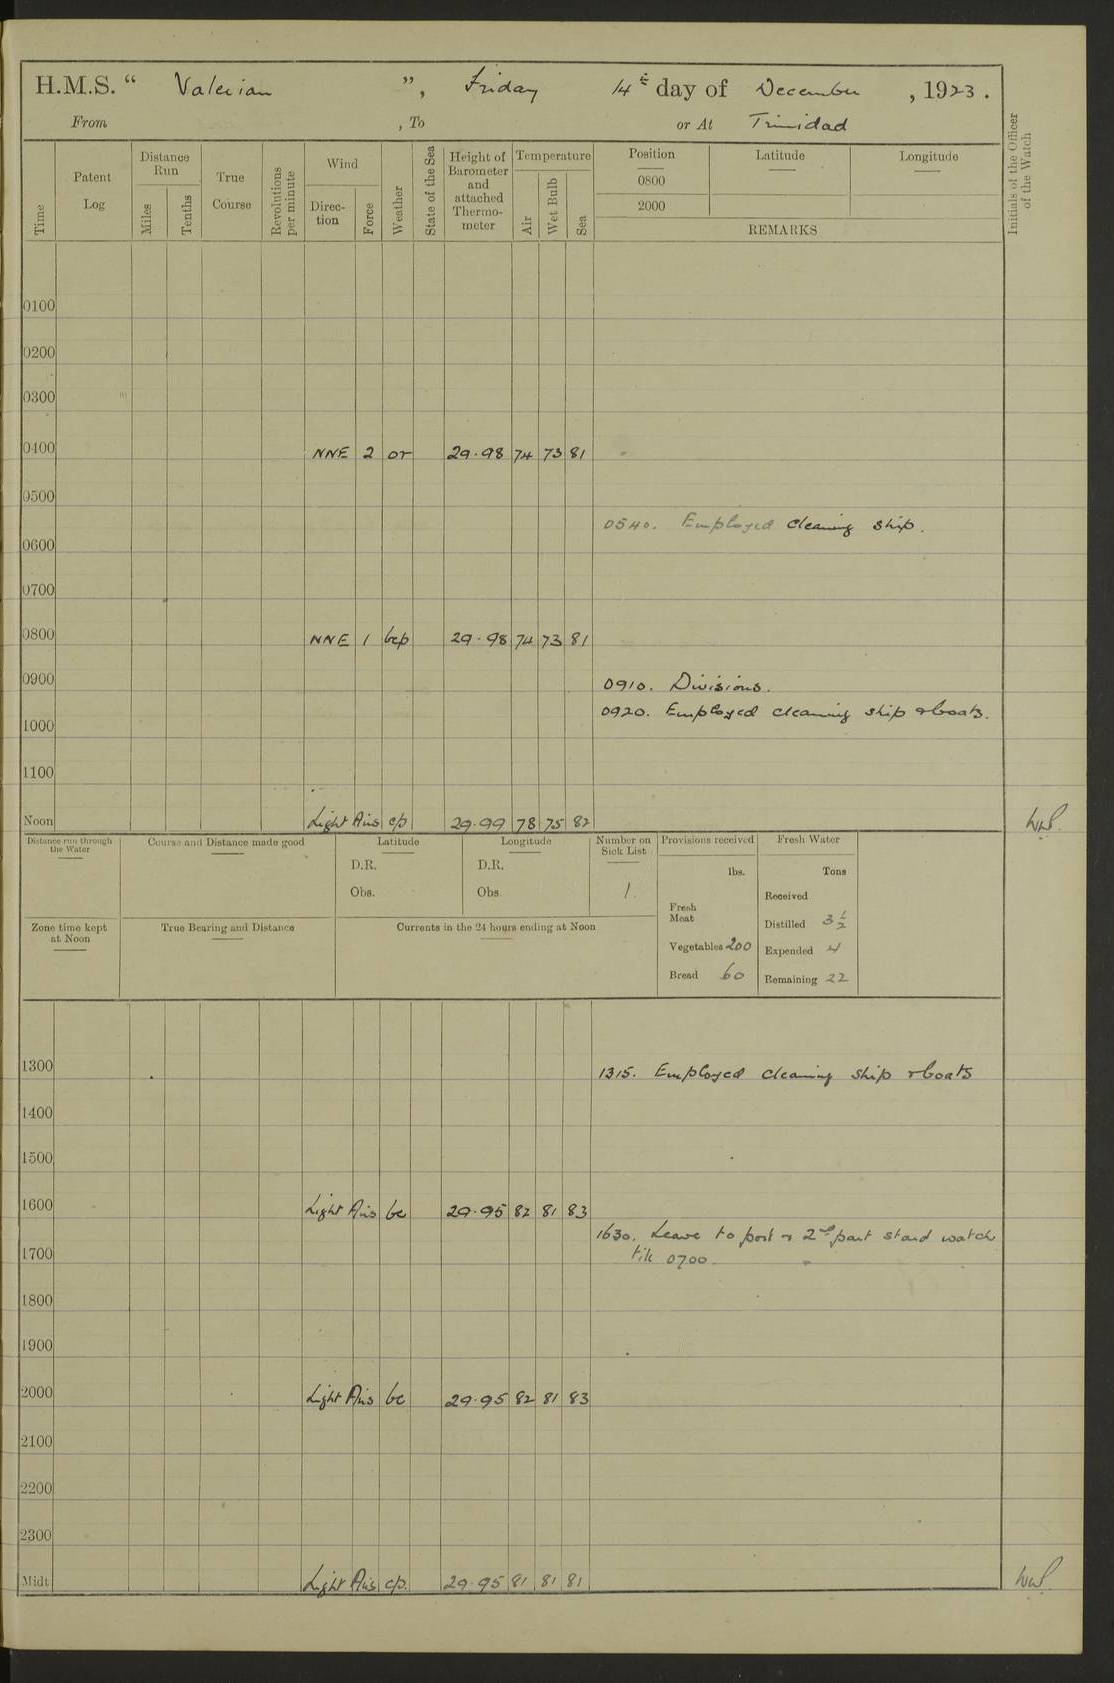 H.M.S. “ Valerian ”, Friday 14th day of December, 1923.
From , To or At Trinidad
Time
Patent Log
Distance Run
Miles
Tenths
True Course
Revolutions per minute
Wind
Direction
Force
Weather
State of the Sea
Height of Barometer and attached Thermometer
Temperature
Air
Wet Bulb
Sea
Position
Latitude
Longitude
0800
2000
REMARKS
Initials of the Officer of the Watch
0100
0200
0300
0400 NNE 2 or 29.98 74 73 81
0500
0540. Employed cleaning ship.
0600
0700
0800 NNE 1 bcp 29.98 74 73 81
0900
0910. Divisions.
0920. Employed cleaning ship & boats.
1000
1100
Noon Light Airs c/p 29.99 78 75 82
Distance run through the Water
Course and Distance made good
Latitude
D.R.
Obs.
Longitude
D.R.
Obs.
Number on Sick List
1
Provisions received
lbs.
Fresh Meat
Vegetables 200
Bread 60
Fresh Water
Tons
Received
Distilled 3½
Expended 4
Remaining 22
Zone time kept at Noon
True Bearing and Distance
Currents in the 24 hours ending at Noon
1300
1315. Employed cleaning ship & boats
1400
1500
1600 Light Airs bc 29.95 82 81 83
1630. Leave to port & 2nd part stard watch
till 0700.
1700
1800
1900
2000 Light Airs bc 29.95 82 81 83
2100
2200
2300
Midt. Light Airs c/p. 29.95 81 81 81